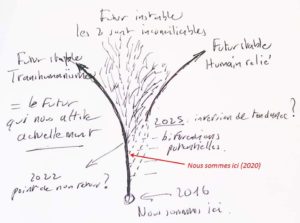 Futur instable
les 2 sont inconciliables
Futur stable
Transhumaniste
Futur stable
Humain relié
= le futur
qui nous attire
actuellement
2025 : inversion de tendance ?
bifurcations
potentielles.
Nous sommes ici (2020)
2022
point de non retour ?
2016
Nous sommes ici.